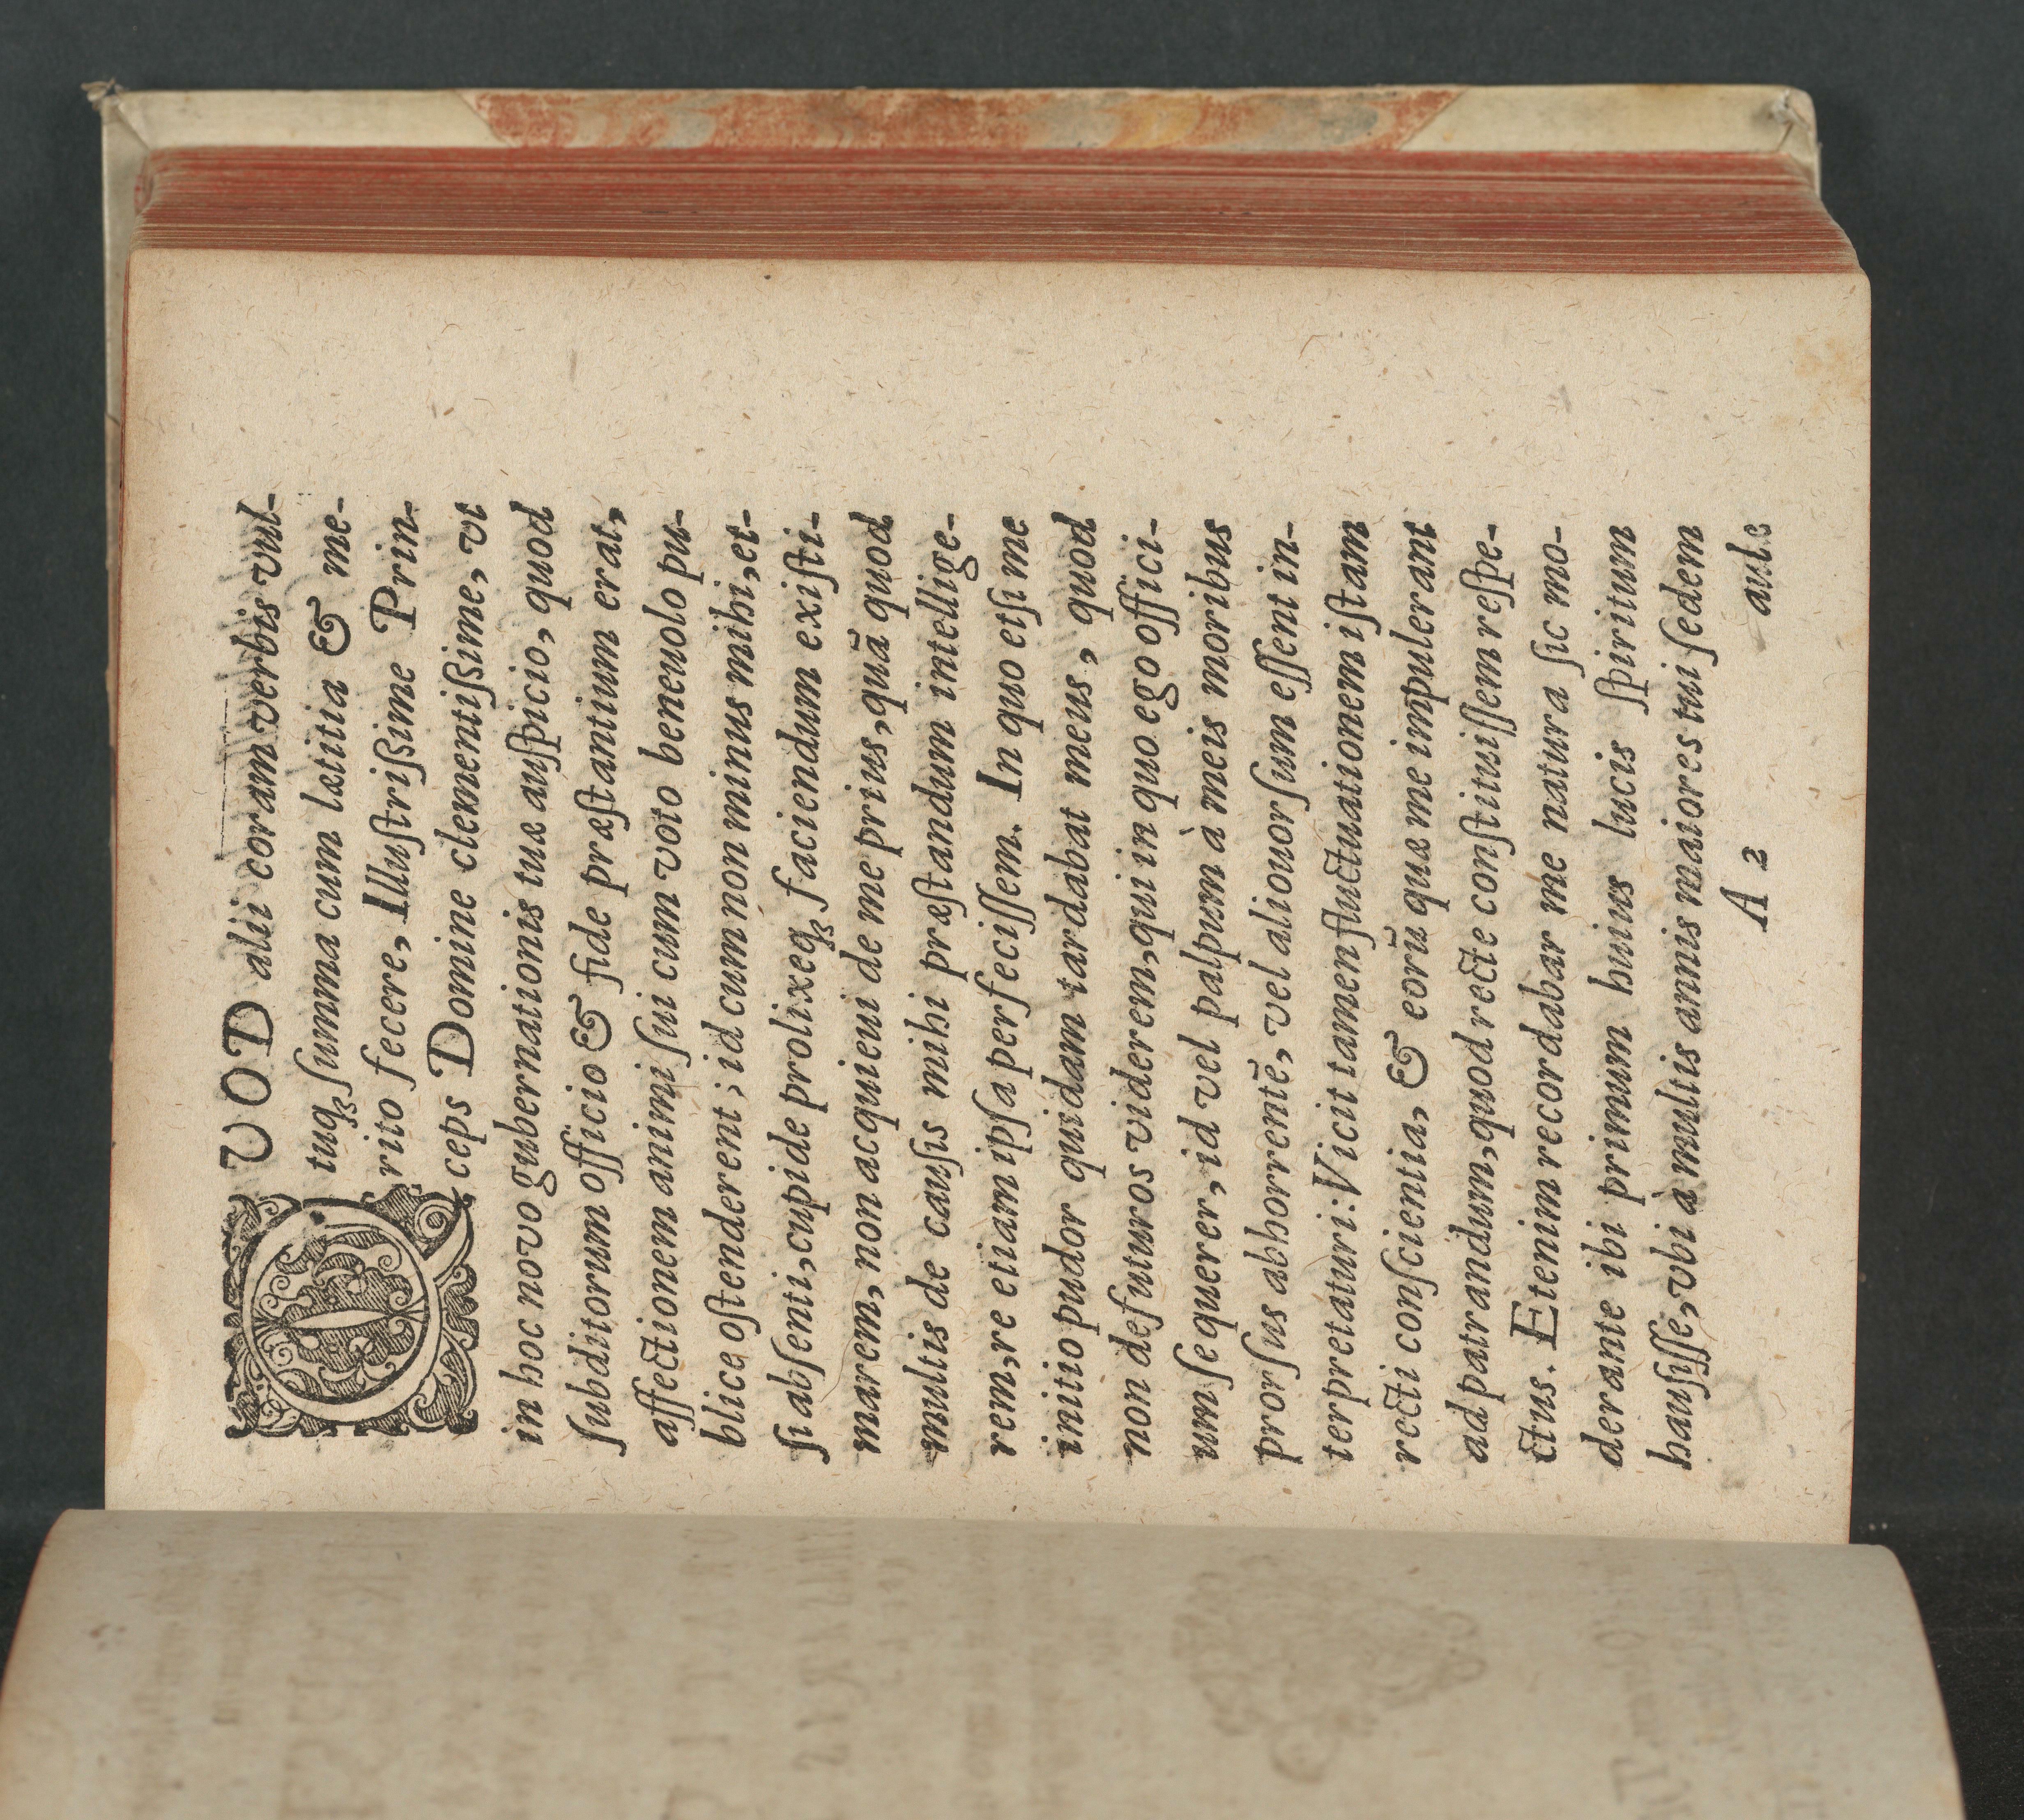 QVOD alii coram verbis vul-
tuqꝫ ſumma cum lætitia & me-
rito fecere, Illuſtriſsime Prin-
ceps Domine clementiſsime, vt
in hoc novo gubernationis tuæ auſpicio, quod
ſubditorum officio & fide præſtantium erat,
affectionem animi ſui cum voto beneuolo pu-
blice oſtenderent; id cum non minus mihi, et-
ſi abſenti, cupide prolixeqꝫ faciendum exiſti-
marem, non acquieui de me prius, quã quod
multis de cauſis mihi præſtandum intellige-
rem, re etiam ipſa perfeciſſem. In quo etſi me
initio pudor quidam tardabat meus, quod
non defuturos viderem, qui in quo ego offici-
um ſequerer, id vel palpum à meis moribus
prorſus abhorrentē, vel aliouorſum eſſent in-
terpretaturi: Vicit tamen fluctuationem iſtam
recti conſcientia, & eorũ quæ me impulerant
ad patrandum, quod recte conſtituiſſem reſpe-
ctus. Etenim recordabar me natura ſic mo-
derante ibi primum huius lucis ſpiritum
hauſiſſe, vbi à multis annis maiores tui ſedem
A 2
aulæ